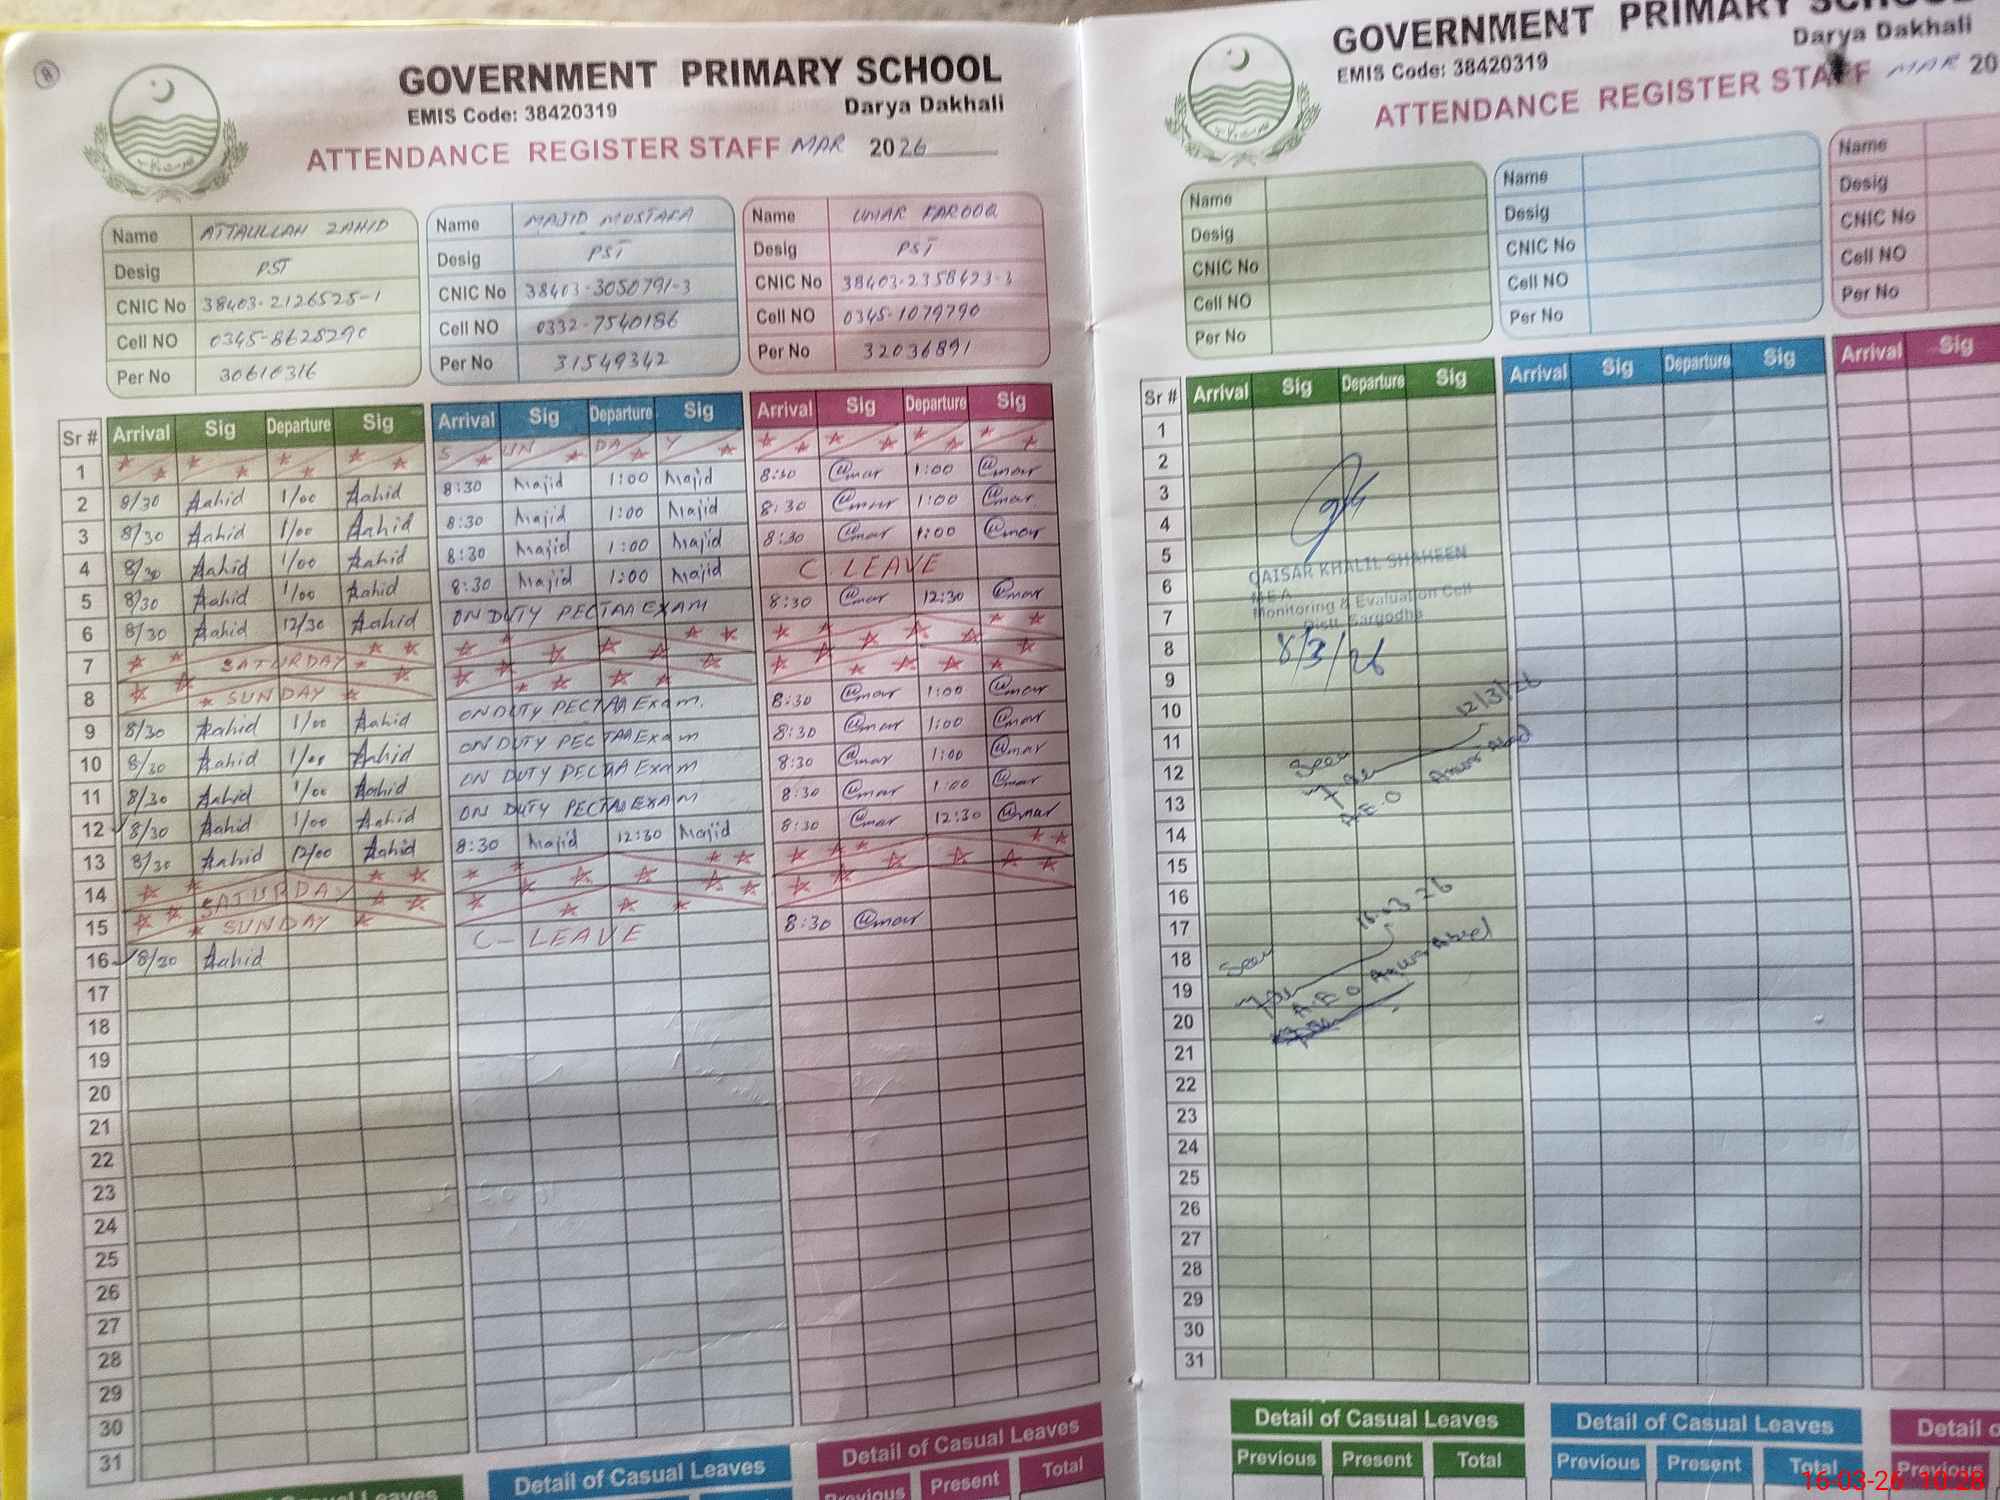 GOVERNMENT PRIMARY SCHOOL
EMIS Code: 38420319 Darya Dakhali
ATTENDANCE REGISTER STAFF MAR 2026
Name ATTAULLAH ZAHID
Desig PST
CNIC No 38403-2126525-1
Cell NO 0345-8628290
Per No 30610316
Name MAJID MUSTAFA
Desig PST
CNIC No 38403-3050791-3
Cell NO 0332-7540186
Per No 31549342
Name UMAR FAROOQ
Desig PST
CNIC No 38403-2358423-3
Cell NO 0345-1079790
Per No 32036891
Sr # Arrival Sig Departure Sig Arrival Sig Departure Sig Arrival Sig Departure Sig
1 SUNDAY
2 8/30 Zahid 1/00 Zahid 8:30 Majid 1:00 Majid 8:30 Umar 1:00 Umar
3 8/30 Zahid 1/00 Zahid 8:30 Majid 1:00 Majid 8:30 Umar 1:00 Umar
4 8/30 Zahid 1/00 Zahid 8:30 Majid 1:00 Majid 8:30 Umar 1:00 Umar
5 8/30 Zahid 1/00 Zahid 8:30 Majid 1:00 Majid C LEAVE
6 8/30 Zahid 12/30 Zahid ON DUTY PECTAA EXAM 8:30 Umar 12:30 Umar
7 SATURDAY
8 SUNDAY
9 8/30 Zahid 1/00 Zahid ON DUTY PECTAA Exam. 8:30 Umar 1:00 Umar
10 8/30 Zahid 1/00 Zahid ON DUTY PECTAA Exam 8:30 Umar 1:00 Umar
11 8/30 Zahid 1/00 Zahid ON DUTY PECTAA Exam 8:30 Umar 1:00 Umar
12 8/30 Zahid 1/00 Zahid ON DUTY PECTAA EXAM 8:30 Umar 1:00 Umar
13 8/30 Zahid 12/00 Zahid 8:30 Majid 12:30 Majid 8:30 Umar 12:30 Umar
14 SATURDAY
15 SUNDAY
16 8/30 Zahid C-LEAVE 8:30 Umar
17
18
19
20
21
22
23
24
25
26
27
28
29
30
31
Leaves
Detail of Casual Leaves
Detail of Casual Leaves
Previous Present Total
GOVERNMENT PRIMARY SCHOOL
EMIS Code: 38420319 Darya Dakhali
ATTENDANCE REGISTER STAFF MAR 20
Name
Desig
CNIC No
Cell NO
Per No
Name
Desig
CNIC No
Cell NO
Per No
Name
Desig
CNIC No
Cell NO
Per No
Sr # Arrival Sig Departure Sig Arrival Sig Departure Sig Arrival Sig
1
2
3
4
5
6
7
8
9
10
11
12
13
14
15
16
17
18
19
20
21
22
23
24
25
26
27
28
29
30
31
QAISAR KHALIL SHAHEEN
MEA
Monitoring & Evaluation Cell
Distt. Sargodha
8/3/26
12/3/26
Seen
A.E.O
16-03-26
Seen
A.E.O
Detail of Casual Leaves
Previous Present Total
Detail of Casual Leaves
Previous Present Total
Detail o
Previous
16-03-26 10:28